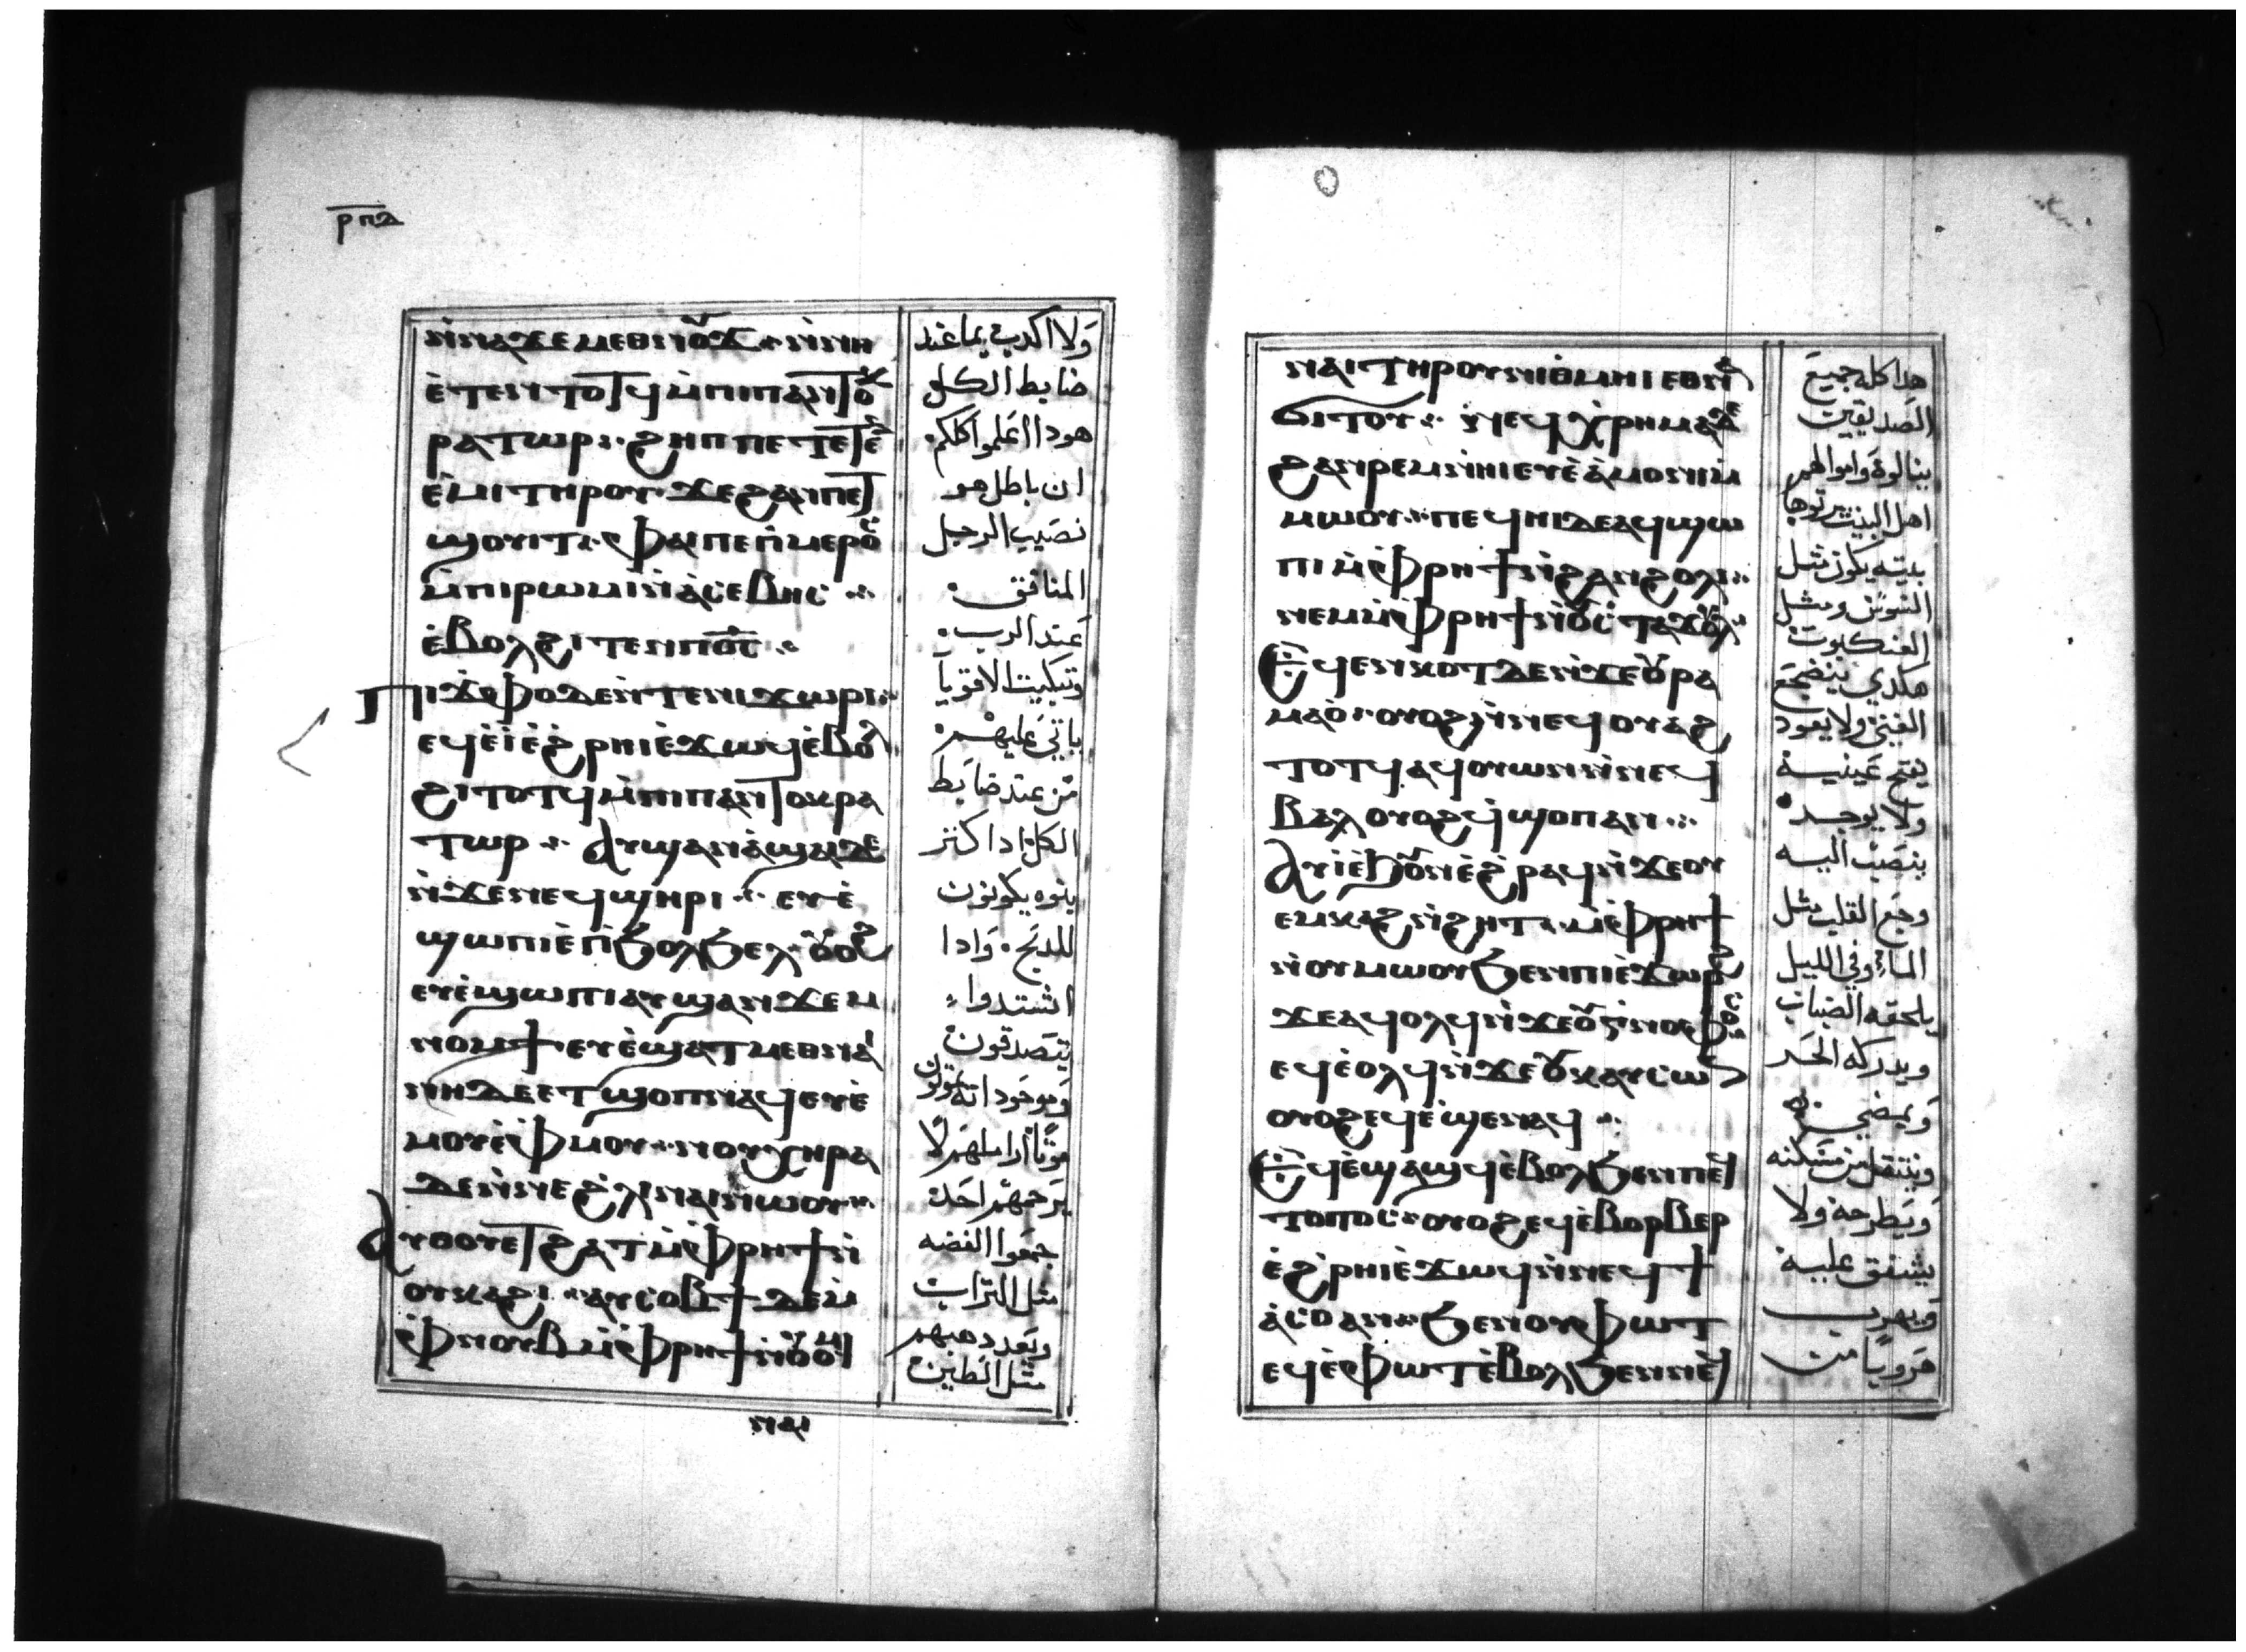 ⲣⲡⲇ
ⲛ̀ⲛⲁϫⲉⲙⲉⲑⲛⲟⲩϫ ⁖ ⲛ̀ⲛⲏ
ⲉ̀ⲧⲉⲛⲧⲟⲧϥ ⲙ̀ⲡⲓⲡⲁⲛⲧⲟⲕ
ⲣⲁⲧⲱⲣ ⁖ ϩⲏⲡⲡⲉ ⲧⲉⲧⲉⲛ
ⲉ̀ⲙⲓ ⲧⲏⲣⲟⲩ ϫⲉ ϩⲁⲛⲡⲉⲧ
ϣⲟⲩⲓⲧ ⁖ ⲫⲁⲓ ⲡⲉ ⲡ̀ⲙⲉⲣⲟⲥ
ⲙ̀ⲡⲓⲣⲱⲙⲓ ⲛ̀ⲁ̀ⲥⲉⲃⲏⲥ ⁖
ⲉ̀ⲃⲟⲗϩⲓⲧⲉⲛ ⲡⲟ̅ⲥ̅ ⁖
ⲡⲓϫⲫⲟ ⲇⲉ ⲛ̀ⲧⲉⲛⲓϫⲱⲣⲓ ⁖
ⲉϥⲉ̀ⲓ̀ ⲉ̀ϩ̀ⲣⲏⲓ ⲉ̀ϫⲱϥ ⲉ̀ⲃⲟⲗ
ϩⲓⲧⲟⲧϥ ⲙ̀ⲡⲓⲡⲁⲛⲧⲟⲕⲣⲁ
ⲧⲱⲣ ⁖ ⲁⲩϣⲁⲛⲁ̀ϣⲁⲓ ⲇⲉ
ⲛ̀ϫⲉⲛⲉϥϣⲏⲣⲓ ⁖ ⲉⲩⲉ̀
ϣⲱⲡⲓ ⲉ̀ⲡ̀ϧⲟⲗϧⲉⲗ ⲟⲩⲟϩ
ⲉⲩⲉ̀ϣⲱⲡⲓ ⲁⲩϣⲁⲛϫⲉⲙ
ⲛⲟⲙϯ ⲉⲩⲉ̀ϣⲁⲧⲙⲉⲑⲛⲁⲓ
ⲛⲏ ⲇⲉ ⲉⲧϣⲟⲡ ⲛⲁϥ ⲉⲩⲉ̀
ⲙⲟⲩ ⲉ̀ⲫⲙⲟⲩ ⁖ ⲛⲟⲩⲭⲏⲣⲁ
ⲇⲉ ⲛ̀ⲛⲉϩ̀ⲗⲓ ⲛⲁⲓ ⲛⲱⲟⲩ ⁖
ⲁⲩⲑⲟⲩⲉⲧ ϩⲁⲧ ⲙ̀ⲫⲣⲏϯ ⲛ̀
ⲟⲩⲕⲁϩⲓ ⁖ ⲁⲩⲥⲟⲃϯ ⲇⲉ ⲙ
ⲫⲛⲟⲩⲃ ⲙ̀ⲫⲣⲏϯ ⲛ̀ⲟⲩⲟⲙⲓ
ⲛⲁⲓ
ولا اكدب بما عند
ضابط الكل
هودا اعلموا كلكم
ان باطل هو
نصيب الرجل
المنافق
عند الرب
وتبكيت الاقويا
ياتي عليهم
من عند ضابط
الكل ادا كتر
بنوه يكونون
للدبح وادا
اشتدوا
يتصدقون
موتًا اراملهم لا
يرحمهم احد
جمعوا الفضه
مثل التراب
ويعد دهبهم
مثل الطين
ⲛⲁⲓ ⲧⲏⲣⲟⲩ ⲛⲓⲑⲙⲏⲓ ⲉⲑⲛⲁ
ϭⲓⲧⲟⲩ ⁖ ⲛⲉϥⲭ̀ⲣⲏⲙⲁ ⲇⲉ
ϩⲁⲛⲣⲉⲙⲛ̀ⲏⲓ ⲉⲩⲉ̀ⲁ̀ⲙⲟⲛⲓ ⲙ̀
ⲙⲱⲟⲩ ⁖ ⲡⲉϥⲏⲓ ⲇⲉ ⲁϥϣⲱ
ⲡⲓ ⲙ̀ⲫⲣⲏϯ ⲛ̀ϩⲁⲛϩⲟⲗⲓ ⁖
ⲛⲉⲙ ⲙ̀ⲫⲣⲏϯ ⲛ̀ⲟⲩⲥⲧⲁϫⲟⲩⲗ ⁖
ⲉϥⲉⲛⲕⲟⲧ ⲇⲉ ⲛ̀ϫⲉⲟⲩⲣⲁ
ⲙⲁⲟ̀ ⁖ ⲟⲩⲟϩ ⲛ̀ⲛⲉϥⲟⲩⲁϩ
ⲧⲟⲧϥ ⲁϥⲟⲩⲱⲛ ⲛ̀ⲛⲉϥ
ⲃⲁⲗ ⲟⲩⲟϩ ϥ̀ϣⲟⲡ ⲁⲛ ⁖
ⲁⲩⲓ̀ ⲉ̀ϧⲟⲩⲛ ⲉ̀ϩ̀ⲣⲁϥ ⲛ̀ϫⲉⲟⲩ
ⲉⲙⲕⲁϩ ⲛ̀ϩⲏⲧ ⁖ ⲙ̀ⲫⲣⲏϯ
ⲛ̀ⲟⲩⲙⲱⲟⲩ ϧⲉⲛ ⲡⲓⲉ̀ϫⲱⲣϩ
ϫⲉ ⲁϥⲟⲗϥ ⲛ̀ϫⲉⲟⲩⲅ̀ⲛⲟⲫⲟⲥ
ⲉϥⲉ̀ⲟⲗϥ ⲛ̀ϫⲉⲟⲩⲕⲁⲩⲥⲱⲛ
ⲟⲩⲟϩ ⲉϥⲉ̀ϣⲉⲛⲁϥ ⁖
ⲉϥⲉ̀ϣⲁϣϥ ⲉ̀ⲃⲟⲗϧⲉⲛ ⲡⲉϥ
ⲧⲟⲡⲟⲥ ⁖ ⲟⲩⲟϩ ⲉϥⲉ̀ⲃⲟⲣⲃⲉⲣ
ⲉ̀ϩ̀ⲣⲏⲓ ⲉ̀ϫⲱϥ ⲛ̀ⲛⲉϥϯ
ⲁ̀ⲥⲟ ⲁⲛ ⁖ ϧⲉⲛ ⲟⲩⲫⲱⲧ
ⲉϥⲉ̀ⲫⲱⲧ ⲉ̀ⲃⲟⲗϧⲉⲛ ⲛⲉϥ
هدا كله جميع
الصديقين
ينالوه واموالهم
اهل البيت يرتوها
بيته يكون مثل
السوس ومثل
العنكبوت
هكدي ينضجع
الغني ولا يعود
يفتح عينيه
ولا يوجد
ينصب اليه
وجع القلب مثل
الماء وفي الليل
يلحقه الضباب
ويدركه الحر
ويمضي
وينتقل من مسكنه
ويطرحه ولا
يشفق عليه
ويهرب
هروبًا من